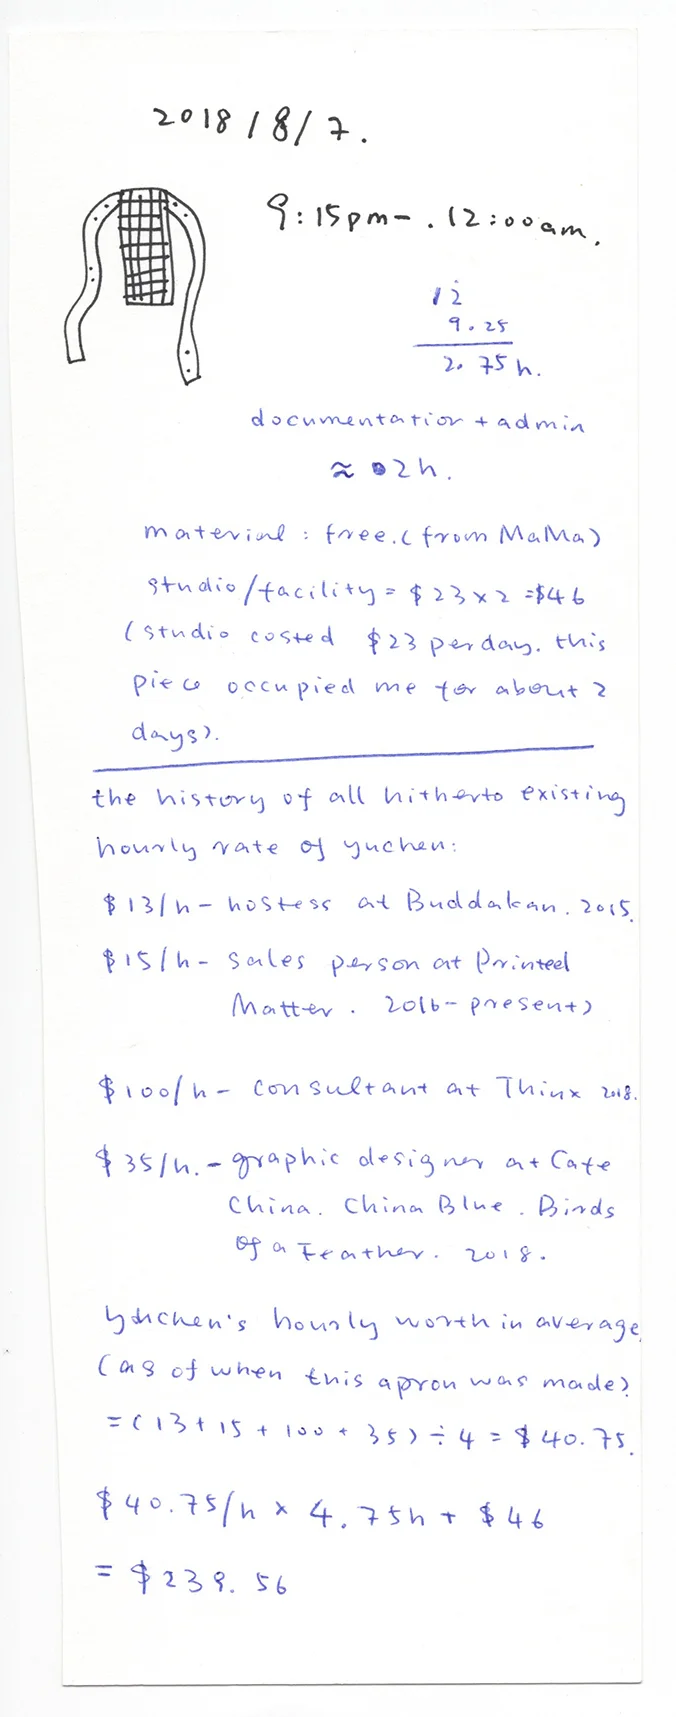 2018/8/7.
9:15pm-.12:00am.
12
9.25
2.75h.
documentation + admin
≈ 2h.
material: free. (from MaMa)
studio/facility = $23 x 2 = $46
(studio costed $23 per day. this
piece occupied me for about 2
days).
the history of all hitherto existing
hourly rate of yuchen:
$13/h - hostess at Buddakan. 2015.
$15/h - sales person at Printed
Matter. 2016 - present)
$100/h - consultant at Thinx 2018.
$35/h. - graphic designer at Cafe
China. China Blue. Birds
of a Feather. 2018.
yuchen's hourly worth in average
(as of when this apron was made)
= (13 + 15 + 100 + 35) ÷ 4 = $40.75.
$40.75/h x 4.75h + $46
= $239.56